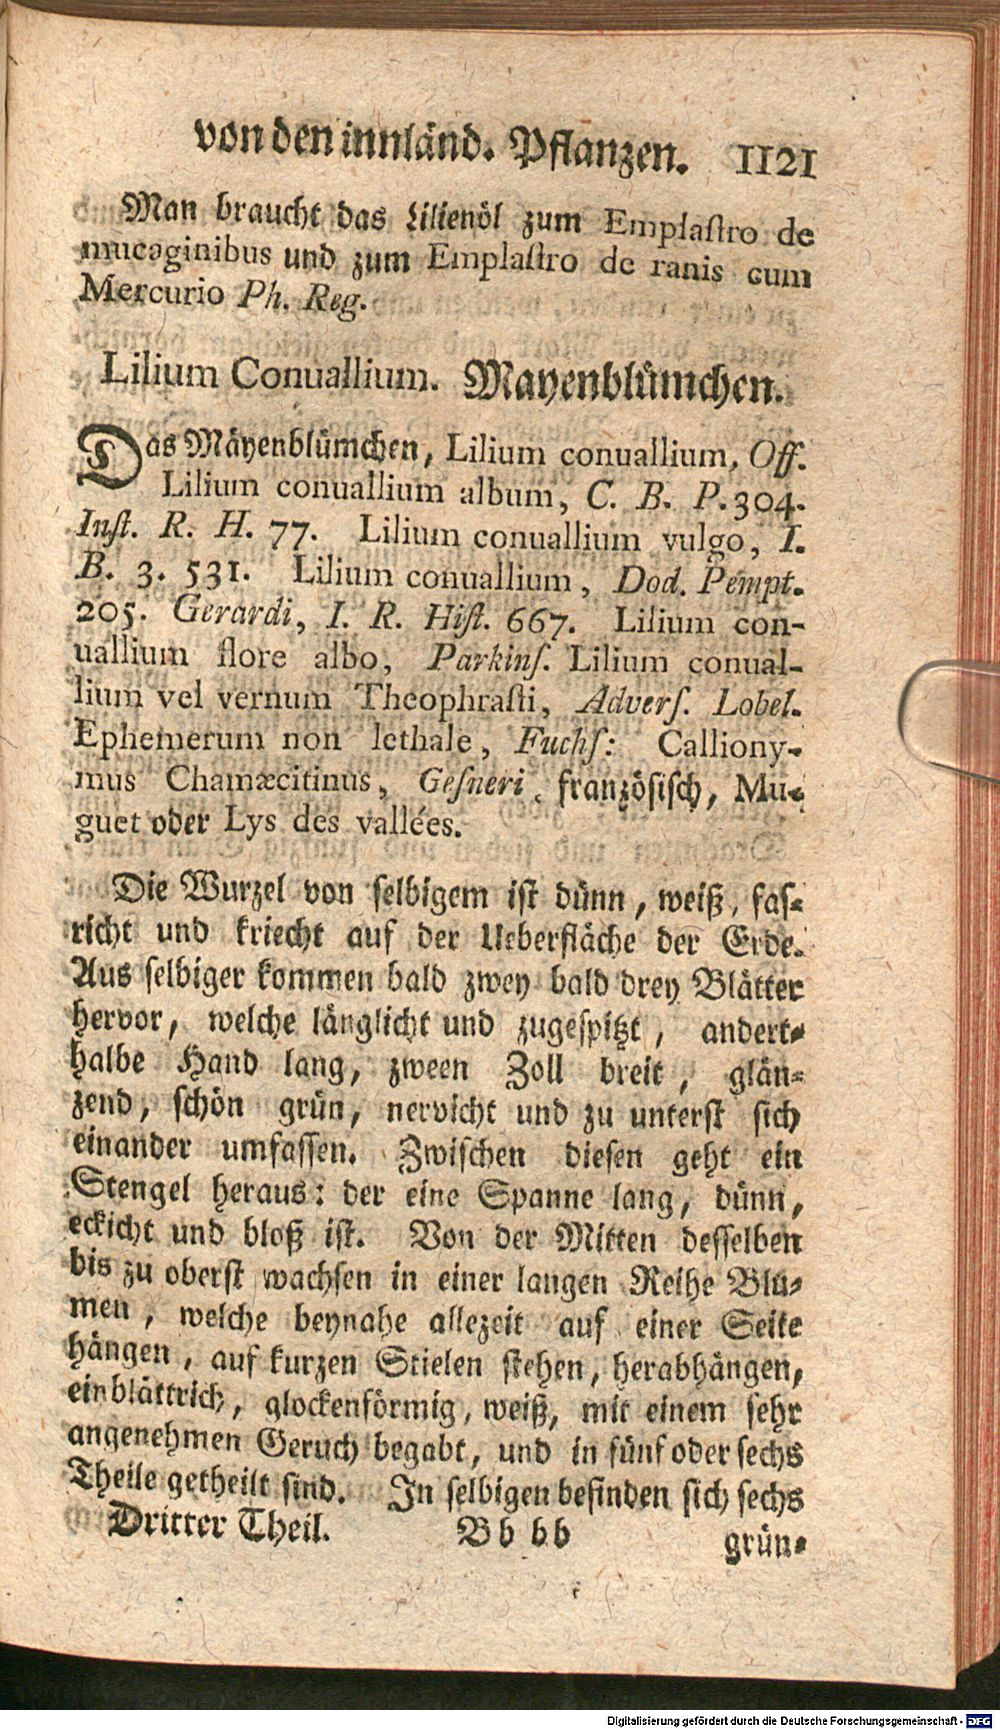 von den innländ. Pflanzen. 1121
Man braucht das Lilienöl zum Emplaſtro de
mucaginibus und zum Emplaſtro de ranis cum
Mercurio Ph. Reg.
Lilium Conuallium. Mayenblümchen.
Das Mäyenblümchen, Lilium conuallium, Off.
Lilium conuallium album, C. B. P. 304.
Inſt. R. H. 77. Lilium conuallium vulgo, I.
B. 3. 531. Lilium conuallium, Dod. Pempt.
205. Gerardi, I. R. Hiſt. 667. Lilium con-
uallium flore albo, Parkinſ. Lilium conual-
lium vel vernum Theophraſti, Adverſ. Lobel.
Ephemerum non lethale, Fuchſ: Calliony-
mus Chamæcitinus, Geſneri, französisch, Mu-
guet oder Lys des vallées.
Die Wurzel von selbigem ist dünn, weiß, fas-
richt und kriecht auf der Ueberfläche der Erde.
Aus selbiger kommen bald zwey bald drey Blätter
hervor, welche länglicht und zugespitzt, andert-
halbe Hand lang, zween Zoll breit, glän-
zend, schön grün, nervicht und zu unterst sich
einander umfassen. Zwischen diesen geht ein
Stengel heraus: der eine Spanne lang, dünn,
eckicht und bloß ist. Von der Mitten desselben
bis zu oberst wachsen in einer langen Reihe Blu-
men, welche beynahe allezeit auf einer Seite
hängen, auf kurzen Stielen stehen, herabhängen,
einblättrich, glockenförmig, weiß, mit einem sehr
angenehmen Geruch begabt, und in fünf oder sechs
Theile getheilt sind. In selbigen befinden sich sechs
Dritter Theil. Bb bb grün-
Digitalisierung gefördert durch die Deutsche Forschungsgemeinschaft - DFG